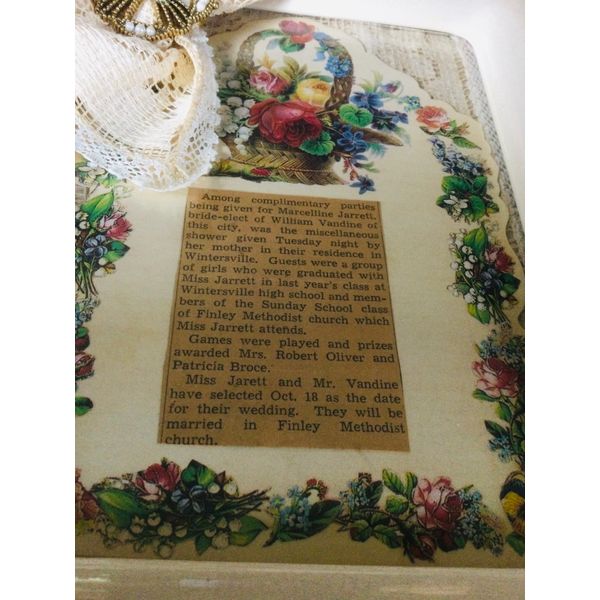 Among complimentary parties
being given for Marcelline Jarrett,
bride-elect of William Vandine of
this city, was the miscellaneous
shower given Tuesday night by
her mother in their residence in
Wintersville. Guests were a group
of girls who were graduated with
Miss Jarrett in last year's class at
Wintersville high school and mem-
bers of the Sunday School class
of Finley Methodist church which
Miss Jarrett attends.
Games were played and prizes
awarded Mrs. Robert Oliver and
Patricia Broce.
Miss Jarett and Mr. Vandine
have selected Oct. 18 as the date
for their wedding. They will be
married in Finley Methodist
church.